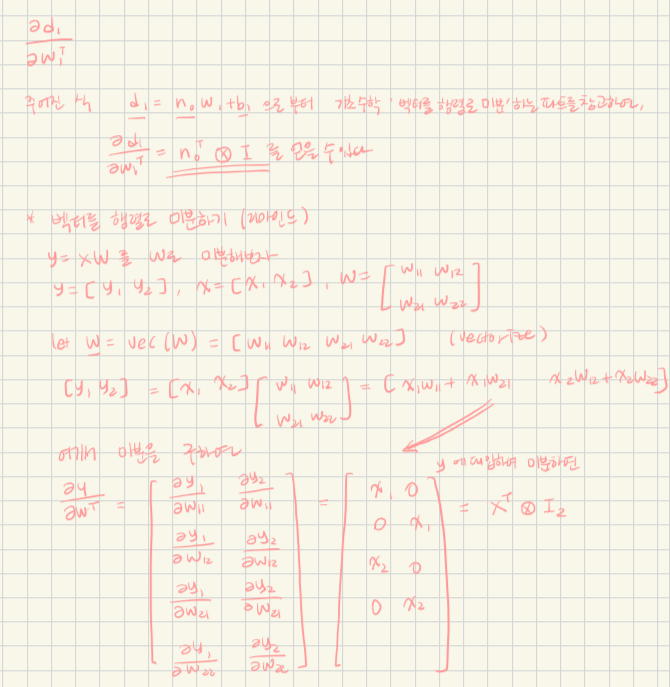 ∂d₁/∂w₁ᵀ
주어진 식 d₁ = n₀w₁+b₁ 으로부터 기초수학 '벡터를 행렬로 미분'하는 파트를 참고하여,
∂d₁/∂w₁ᵀ = n₀ᵀ ⊗ I 를 얻을 수 있다
* 벡터를 행렬로 미분하기 (리마인드)
y = xW 를 W로 미분해보자
y = [y₁ y₂], x = [x₁ x₂], W = [w₁₁ w₁₂
w₂₁ w₂₂]
let w = vec(W) = [w₁₁ w₁₂ w₂₁ w₂₂] (vectorize)
[y₁ y₂] = [x₁ x₂] [w₁₁ w₁₂ = [x₁w₁₁ + x₁w₂₁ x₂w₁₂+x₂w₂₂]
w₂₁ w₂₂]
여기서 미분을 구하면
y에 대입하여 미분하면
∂y/∂wᵀ = [∂y₁/∂w₁₁ ∂y₂/∂w₁₁ = [x₁ 0 = xᵀ ⊗ I₂
∂y₁/∂w₁₂ ∂y₂/∂w₁₂ 0 x₁
∂y₁/∂w₂₁ ∂y₂/∂w₂₁ x₂ 0
∂y₁/∂w₂₂ ∂y₂/∂w₂₂] 0 x₂]